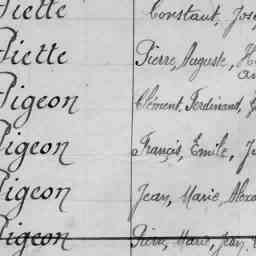 Piette Constant, José
Piette Pierre, Auguste, H
Pigeon Clément, Ferdinand, G
Pigeon François, Emile, Ju
Pigeon Jean, Marie, Alexa
Pigeon Pierre, Marie, Jean,